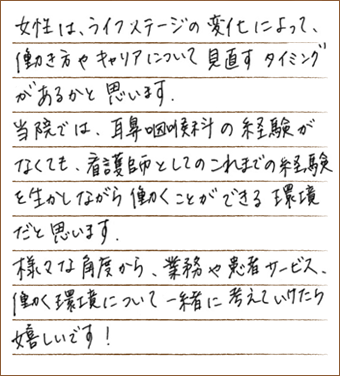 女性は、ライフステージの変化によって、
働き方やキャリアについて見直すタイミング
があるかと思います.
当院では、耳鼻咽喉科の経験が
なくても、看護師としてのこれまでの経験
を生かしながら働くことができる環境
だと思います.
様々な角度から、業務や患者サービス、
働く環境について一緒に考えていけたら
嬉しいです!